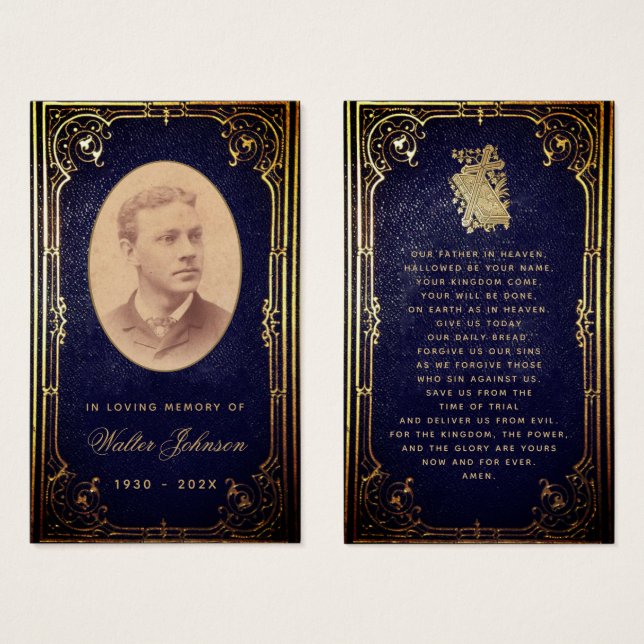 IN LOVING MEMORY OF
Walter Johnson
1930 - 202X
OUR FATHER IN HEAVEN,
HALLOWED BE YOUR NAME,
YOUR KINGDOM COME,
YOUR WILL BE DONE,
ON EARTH AS IN HEAVEN.
GIVE US TODAY
OUR DAILY BREAD.
FORGIVE US OUR SINS
AS WE FORGIVE THOSE
WHO SIN AGAINST US.
SAVE US FROM THE
TIME OF TRIAL
AND DELIVER US FROM EVIL.
FOR THE KINGDOM, THE POWER,
AND THE GLORY ARE YOURS
NOW AND FOR EVER.
AMEN.